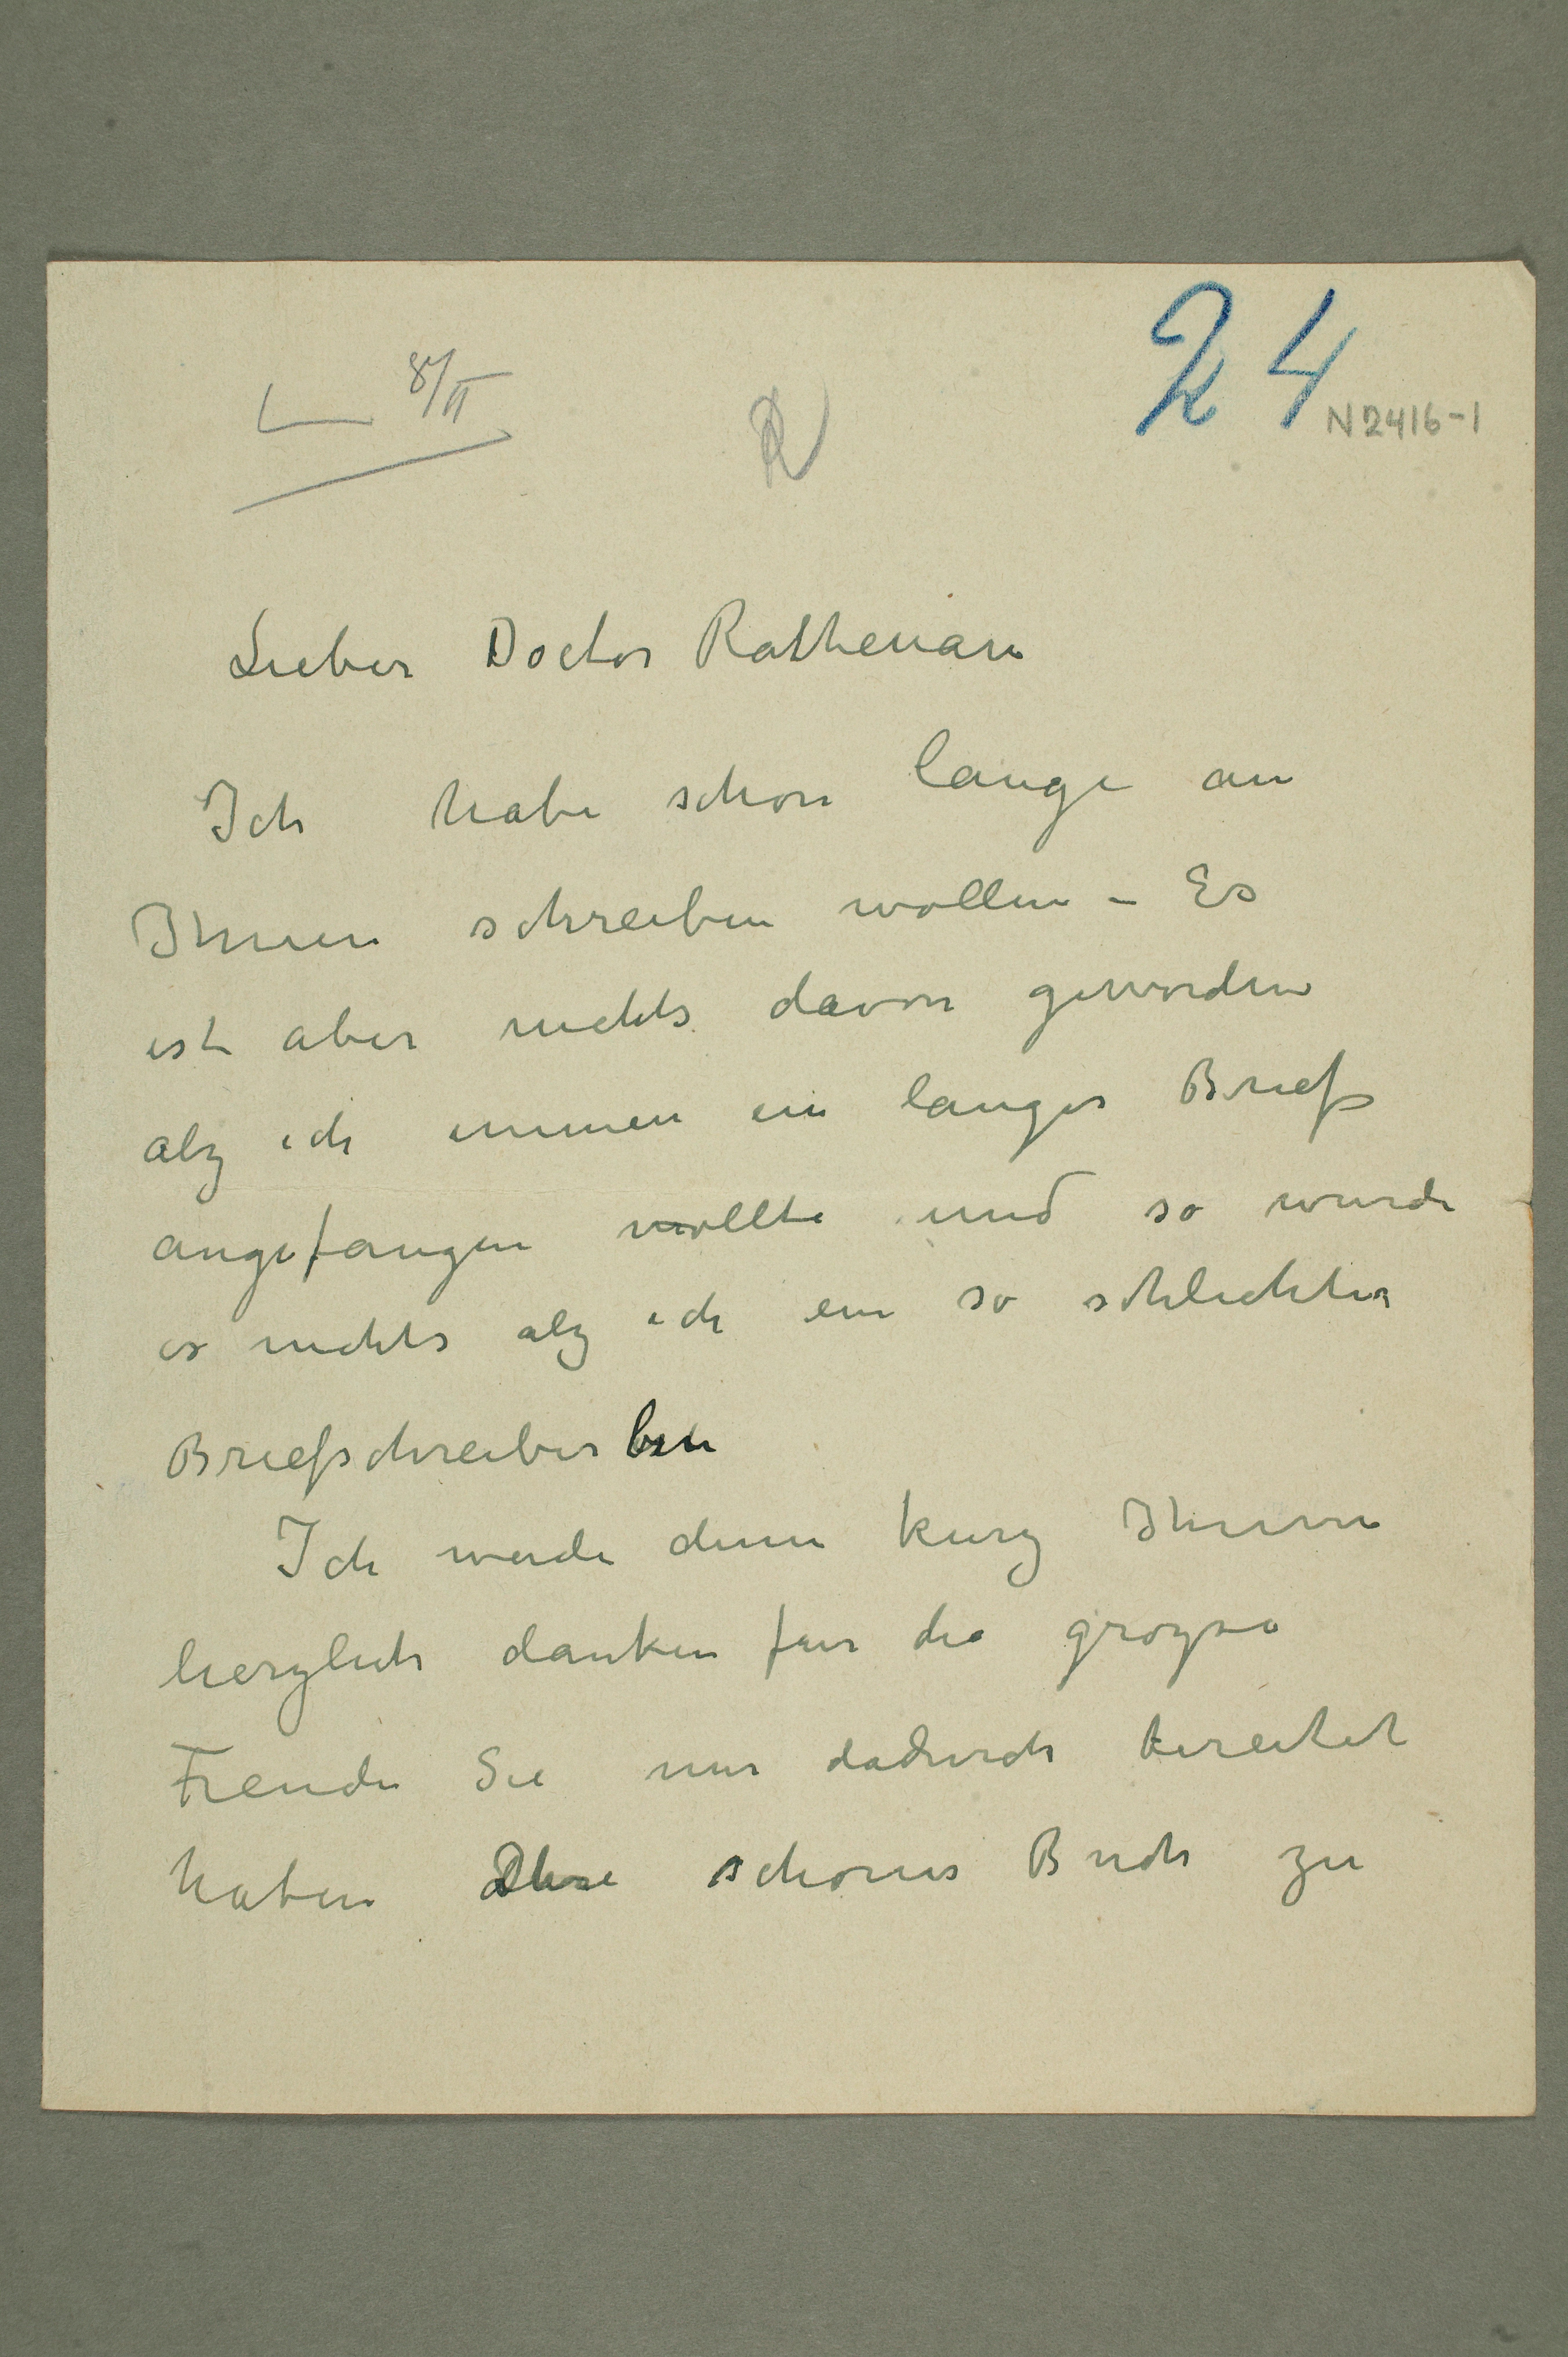 8/II
24
N2416-1
Lieber Doctor Rathenau
Ich habe schon lange an
Ihnen schreiben wollen – Es
ist aber nichts davon geworden
alz ich immer ein langer Brief
angefangen wollte und so wurde
es nichts alz ich ein so schlechter
Briefschreiber bin
Ich werde denn kurz Ihnen
herzlich danken fur die grozse
Freude Sie mir dadurch bereitet
haben Ihre schones Buch zu